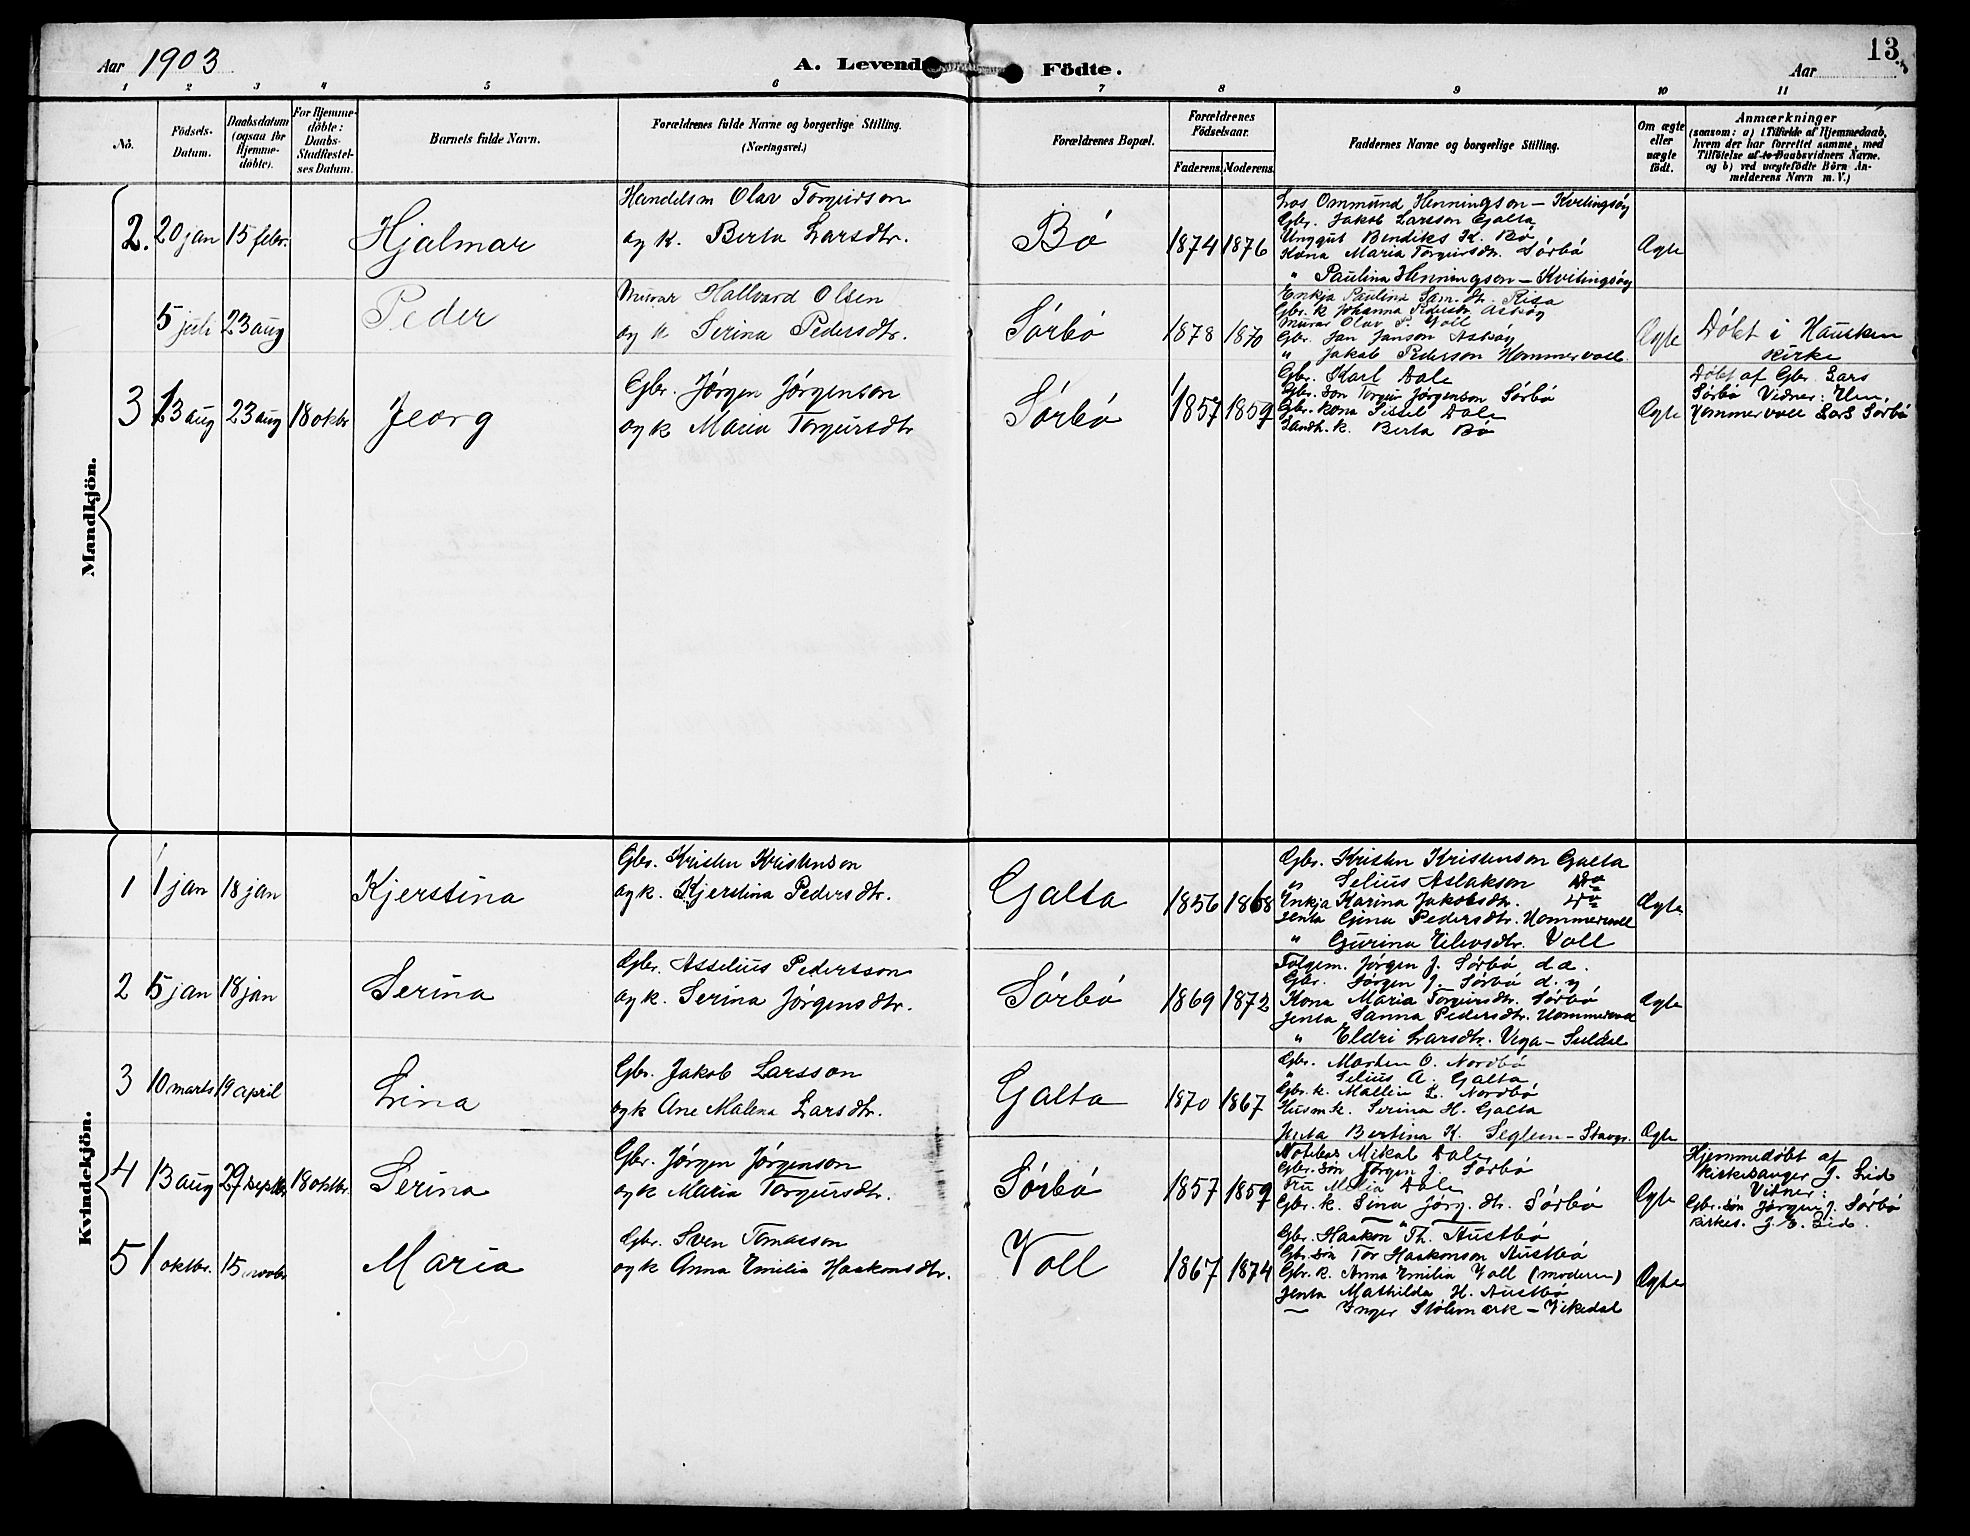 Aar 1903
A. Levende Födte.
Aar
13
1 2 3 4 5 6 7 8 9 10 11
No.
Födsels-Datum.
Daabsdatum (ogsaa for Hjemme-döbte).
For Hjemme-döbte: Daabs-Stadfæstel-ses Datum.
Barnets fulde Navn.
Forældrenes fulde Navne og borgerlige Stilling. (Næringsvei.)
Forældrenes Bopæl.
Forældrenes Födselsaar.
Faderens. Moderens.
Faddernes Navne og borgerlige Stilling.
Om ægte eller uægte födt.
Anmærkninger
(saasom: a) i Tilfælde af Hjemmedaab, hvem der har forrettet samme, med Tilföielse af to Daabsvidners Navne. og b) ved uægtefödte Börn An-melderens Navn m. V.)
Mandkjön.
2. 20 jan 15 febr. Hjalmar
Handelsm Olav Torgersson
og k. Berta Larsdtr.
Bø 1874 1876
Los Ommund Henningson – Kvitingsøy
Gbr. Jakob Larsson Galta
Unggut Bendiks K. Bø
Kona Maria Torgursdtr. Sørbø
" Paulina Henningson – Kvitingsøy
Ægte
5 juli 23 aug Peder
Murar Hallvard Olsen
og k Serina Pedersdtr.
Sørbø 1878 1870
Enkja Paulina Sam. dt. Risa
Gbr. k Johanna Pedersdtr. Askøy
Murar Olav P. Voll
Gbr. Jan Janson Askøy
" Jakob Pederson Hommervoll.
Ægte
Døbt i Hausken
kirke
3 13 aug 23 aug 18 oktbr Jeorg
Gbr. Jørgen Jørgenson
og k Maria Torgursdtr
Sørbø 1857 1859
Gbr. Karl Dale
Gbr. søn Torgur Jørgenson Sørbø
Gbr. kona Sissel Dale
Landh. k. Berta Bø
Ægte
Døbt af Gbr. Lars
Sørbø Vidner:
Hommervoll Lars Sørbø
Kvindekjön.
1 1 jan 18 jan Kjerstina
Gbr. Kristen Kristenson
og k. Kjerstina Pedersdtr.
Galta 1856 1868
Gbr. Kristen Kristenson Galta
" Selius Aslakson do
Enkja Karina Jakobsdtr. do
Jenta Gjina Pedersdtr. Hommervoll
" Gurina Eilevsdtr. Voll
Ægte
2 5 jan 18 jan Serina
Gbr. Asselius Pedersson
og k. Serina Jørgensdtr.
Sørbø 1869 1872
Følgem. Jørgen J. Sørbø d.æ.
Gbr. Jørgen J. Sørbø d. y
Kona Maria Torgursdtr. Sørbø
Jenta Sanna Pedersdtr. Hommervoll
" Eldri Larsdtr. Vega – Suldal
Ægte
3 10 marts 19 april Lina
Gbr. Jakob Larsson
og k Ane Malena Larsdtr.
Galta 1870 1867
Gbr. Morten O. Nordbø
" Selius A. Galta
Gbr. k. Mallin L. Nordbø
Husm k. Serina H. Galta
Jenta Bertina K. Seglem – Stavgr.
Ægte
4 13 aug 29 septbr 18 oktbr. Serina
Gbr. Jørgen Jørgenson
og k Maria Torgursdtr.
Sørbø 1857 1859
Mikal Dale
Gbr. søn Jørgen J. Sørbø
Fru Malia Dale
Gbr. k. Sina Jørg. dtr. Sørbø
Ægte
Hjemmedøbt af
kirkesanger J. Lid
Vidner:
Gbr. søn Jørgen J. Sørbø
kirkes. J. E. Lid.
5 1 oktbr. 15 novbr Maria
Gbr. Sven Tomasson
og k Anna Emilia Haakonsdtr.
Voll 1867 1874
Gbr. Haakon Th. Austbø
Gbr. søn Tor Haakonson Austbø
Gbr. k. Anna Emilia Voll (moderen)
Jenta Mathilda H. Austbø
— Inger Stølsmark – Vikedal
Ægte